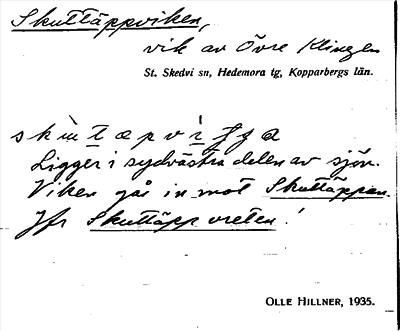 Skuttäppviken,
vik av Övre Klingen
St. Skedvi sn, Hedemora tg, Kopparbergs län.
Ligger i sydvästra delen av sjön.
Viken går in mot Skuttäppan.
Jfr Skuttäppvreten!
OLLE HILLNER, 1935.